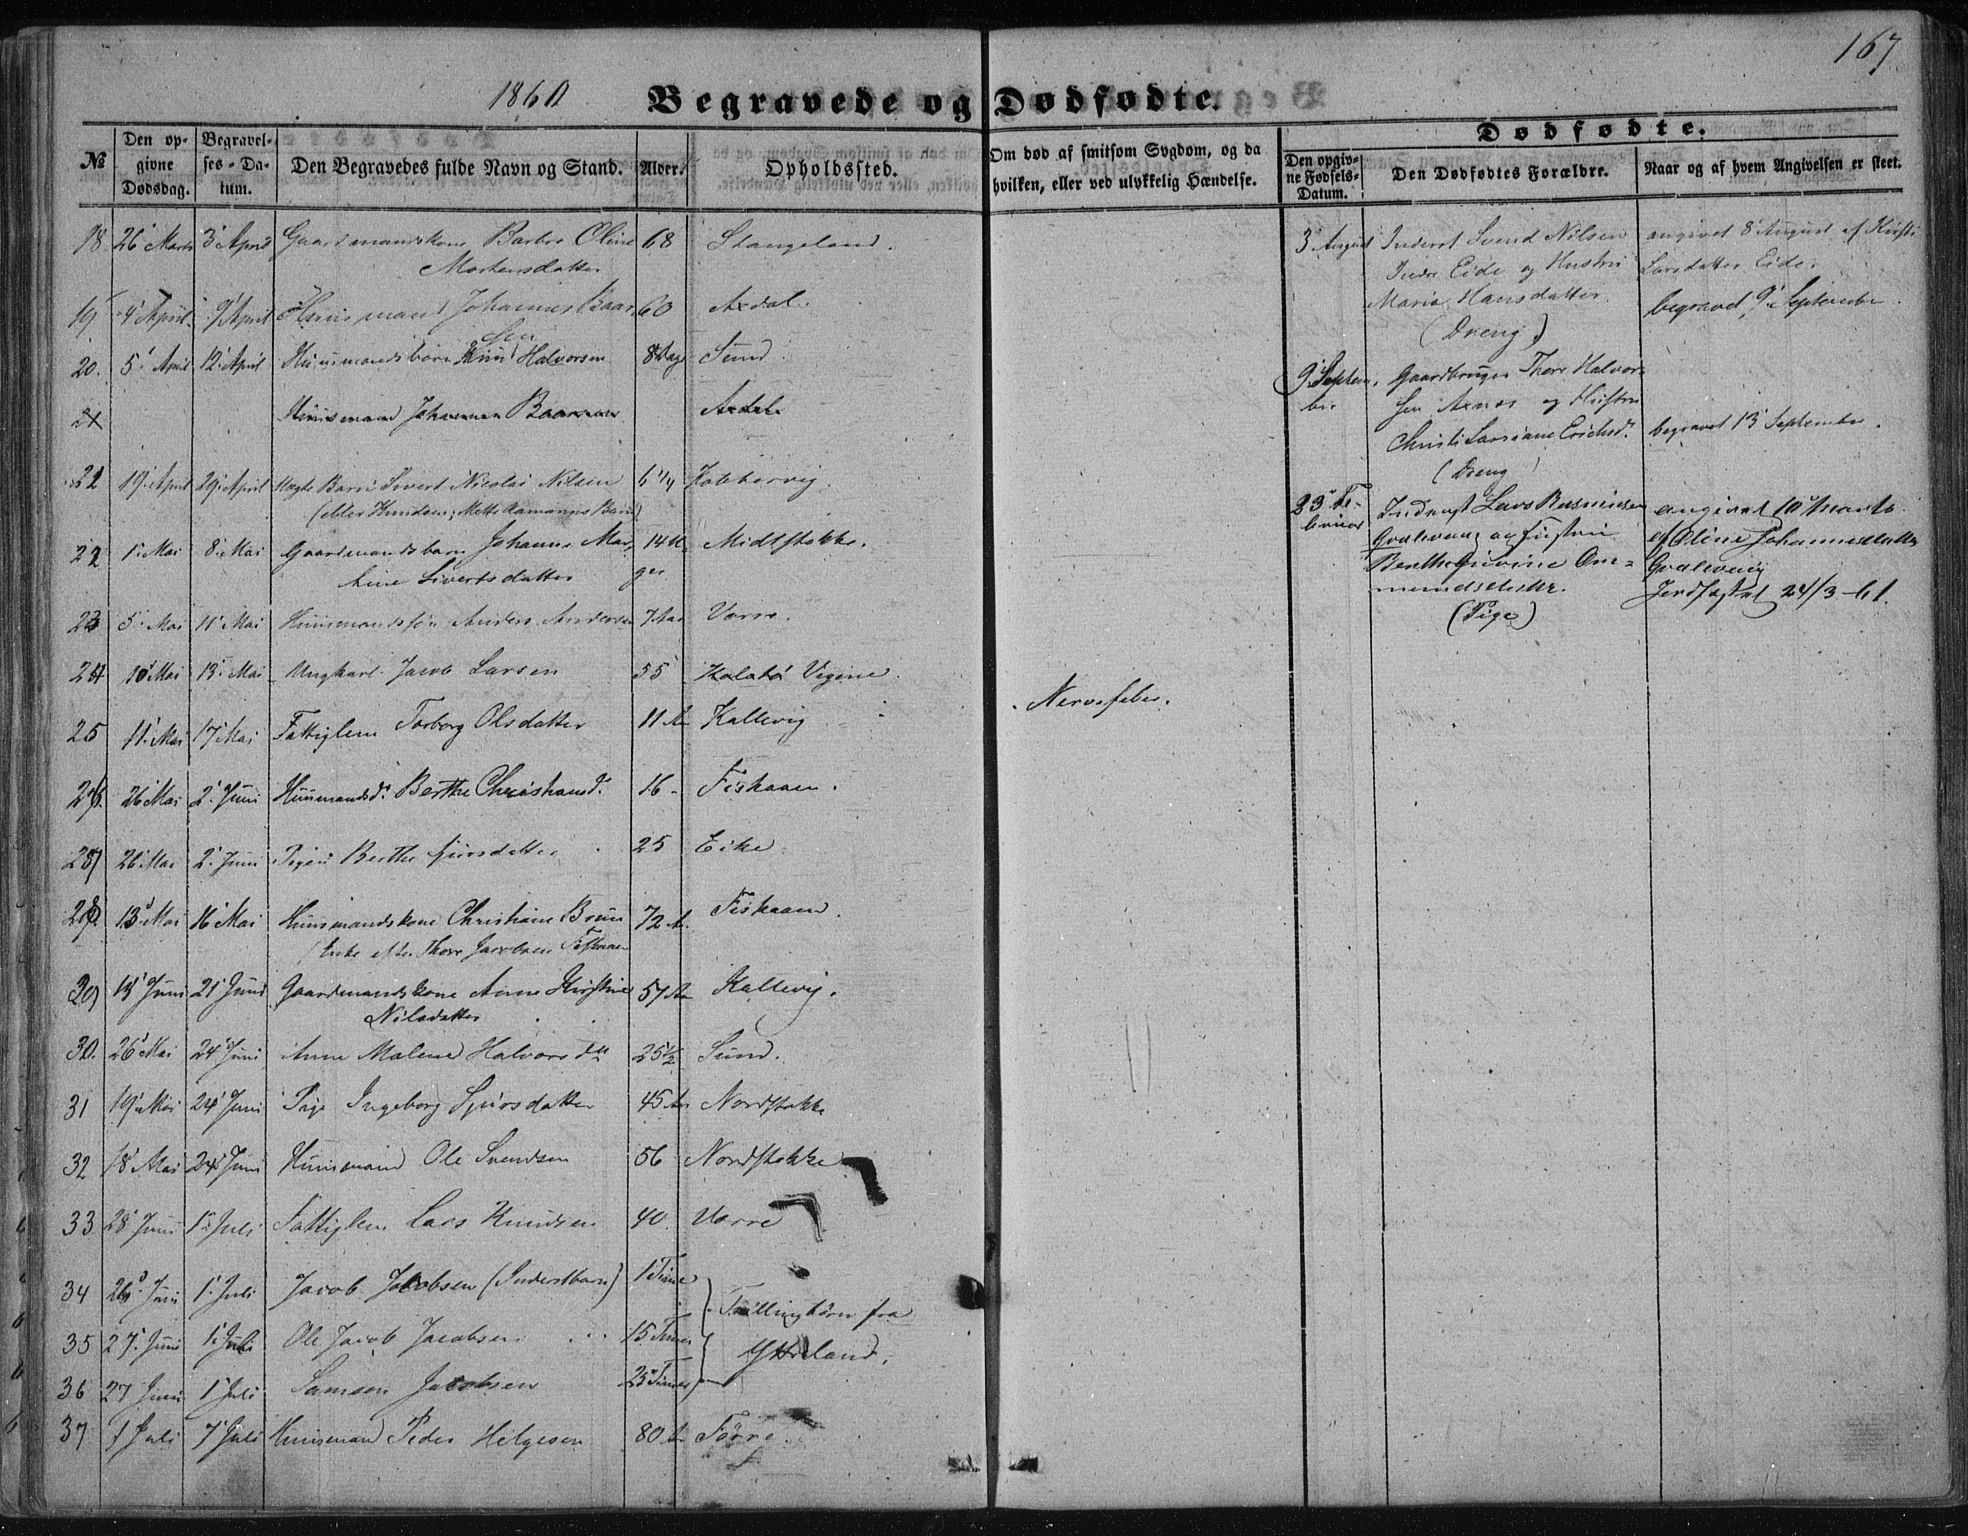 167
1860 Begravede og Dødfødte.
Dødfødte.
No
Den opgivne Dødsdag.
Begravelses-Datum.
Den Begravedes fulde Navn og Stand.
Alder.
Opholdssted.
Om død af smitsom Sygdom, og da hvilken, eller ved ulykkelig Hændelse.
Den opgivne Fødsels-Datum.
Den Dødfødtes Forældre.
Naar og af hvem Angivelsen er skeet.
18. 26 Marts 3 April Gaardmandskone Barbro Oline 68 Stangeland.
Mortensdatter
19 4 April 9 April Huusmand Johannes Baar 60 Axdal.
sen
20. 5 April 12 April Huusmandsbarn Knud Halvorsen 8 Dage Sund.
21 Huusmand Johannes Baarsen Axdal
21 19 April 29 April Barn Sivert Nicolai Nilsen 6 1/4
(eller Knudsen,
22 1 Mai 8 Mai Gaardmandsbarn Johanne Mar 14 Midtstokke.
Sivertsdatter
23 5 Mai 11 Mai Huusmandssøn Anders Andersen 7 Aar Vorre.
24 10 Mai 13 Mai Ungkarl Jacob Larsen 55 Kalstø
25 11 Mai 17 Mai Fattiglem Torborg Olsdatter 11 A Kallevig
Nervefeber.
26. 26 Mai 2 Juni Huusmandsd. Berthe Christiansd. 16 Fiskaaen.
27 26 Mai 2 Juni Pigen Berthe 25 Eike
28 13 Mai 16 Mai Huusmandskone Christiane Bruun 72 A. Fiskaaen.
(Enke efter Thore Jacobsen Fiskaaen
29 15 Juni 21 Juni Gaardmandskone Anne Kirstine 57 Aar Kallevig.
Nilsdatter
30. 26 Mai 24 Juni Anne Malene Halvorsdtr 25 1/2 Sund.
31 19 Mai 24 Juni Pige Ingeborg Sjursdatter 45 Aar Nordstokke
32 18 Mai 24 Juni Huusmand Ole Svendsen 56 Nordstokke
33 28 Juni 1 Juli Fattiglem Lars Knudsen 40 Vorre
34 26 Juni 1 Juli Jacob Jacobsen (Inderstbarn) 1 Time
Trillingbørn fra
35 27 Juni 1 Juli Ole Jacob Jacobsen 15 Timer
Ytreland.
36 27 Juni 1 Juli Samson Jacobsen 23 Timer
37 1 Juli 7 Juli Huusmand Peder Helgesen 80 A. Førre.
3 August Inderst Svend Nilsen angivet 8 August af Kirsti
Indre Eide og Hustru Larsdatter Eide.
Maria Hansdatter. begravet 9 September
(Dreng)
9 Septem- Gaardbruger Thore Halvor-
ber sen Axnes og Hustru
Christi Larsiane Erichsd. begravet 13 September.
(Dreng)
23 Fe- Inderst Lars Rasmussen angivet 10 Marts
bruar Gvalevaag og Hustru af Oline Johannesdatter
Berthe Om- Gvalevaag
mundsdatter. Jordfæstet 24/3-61.
(Pige)